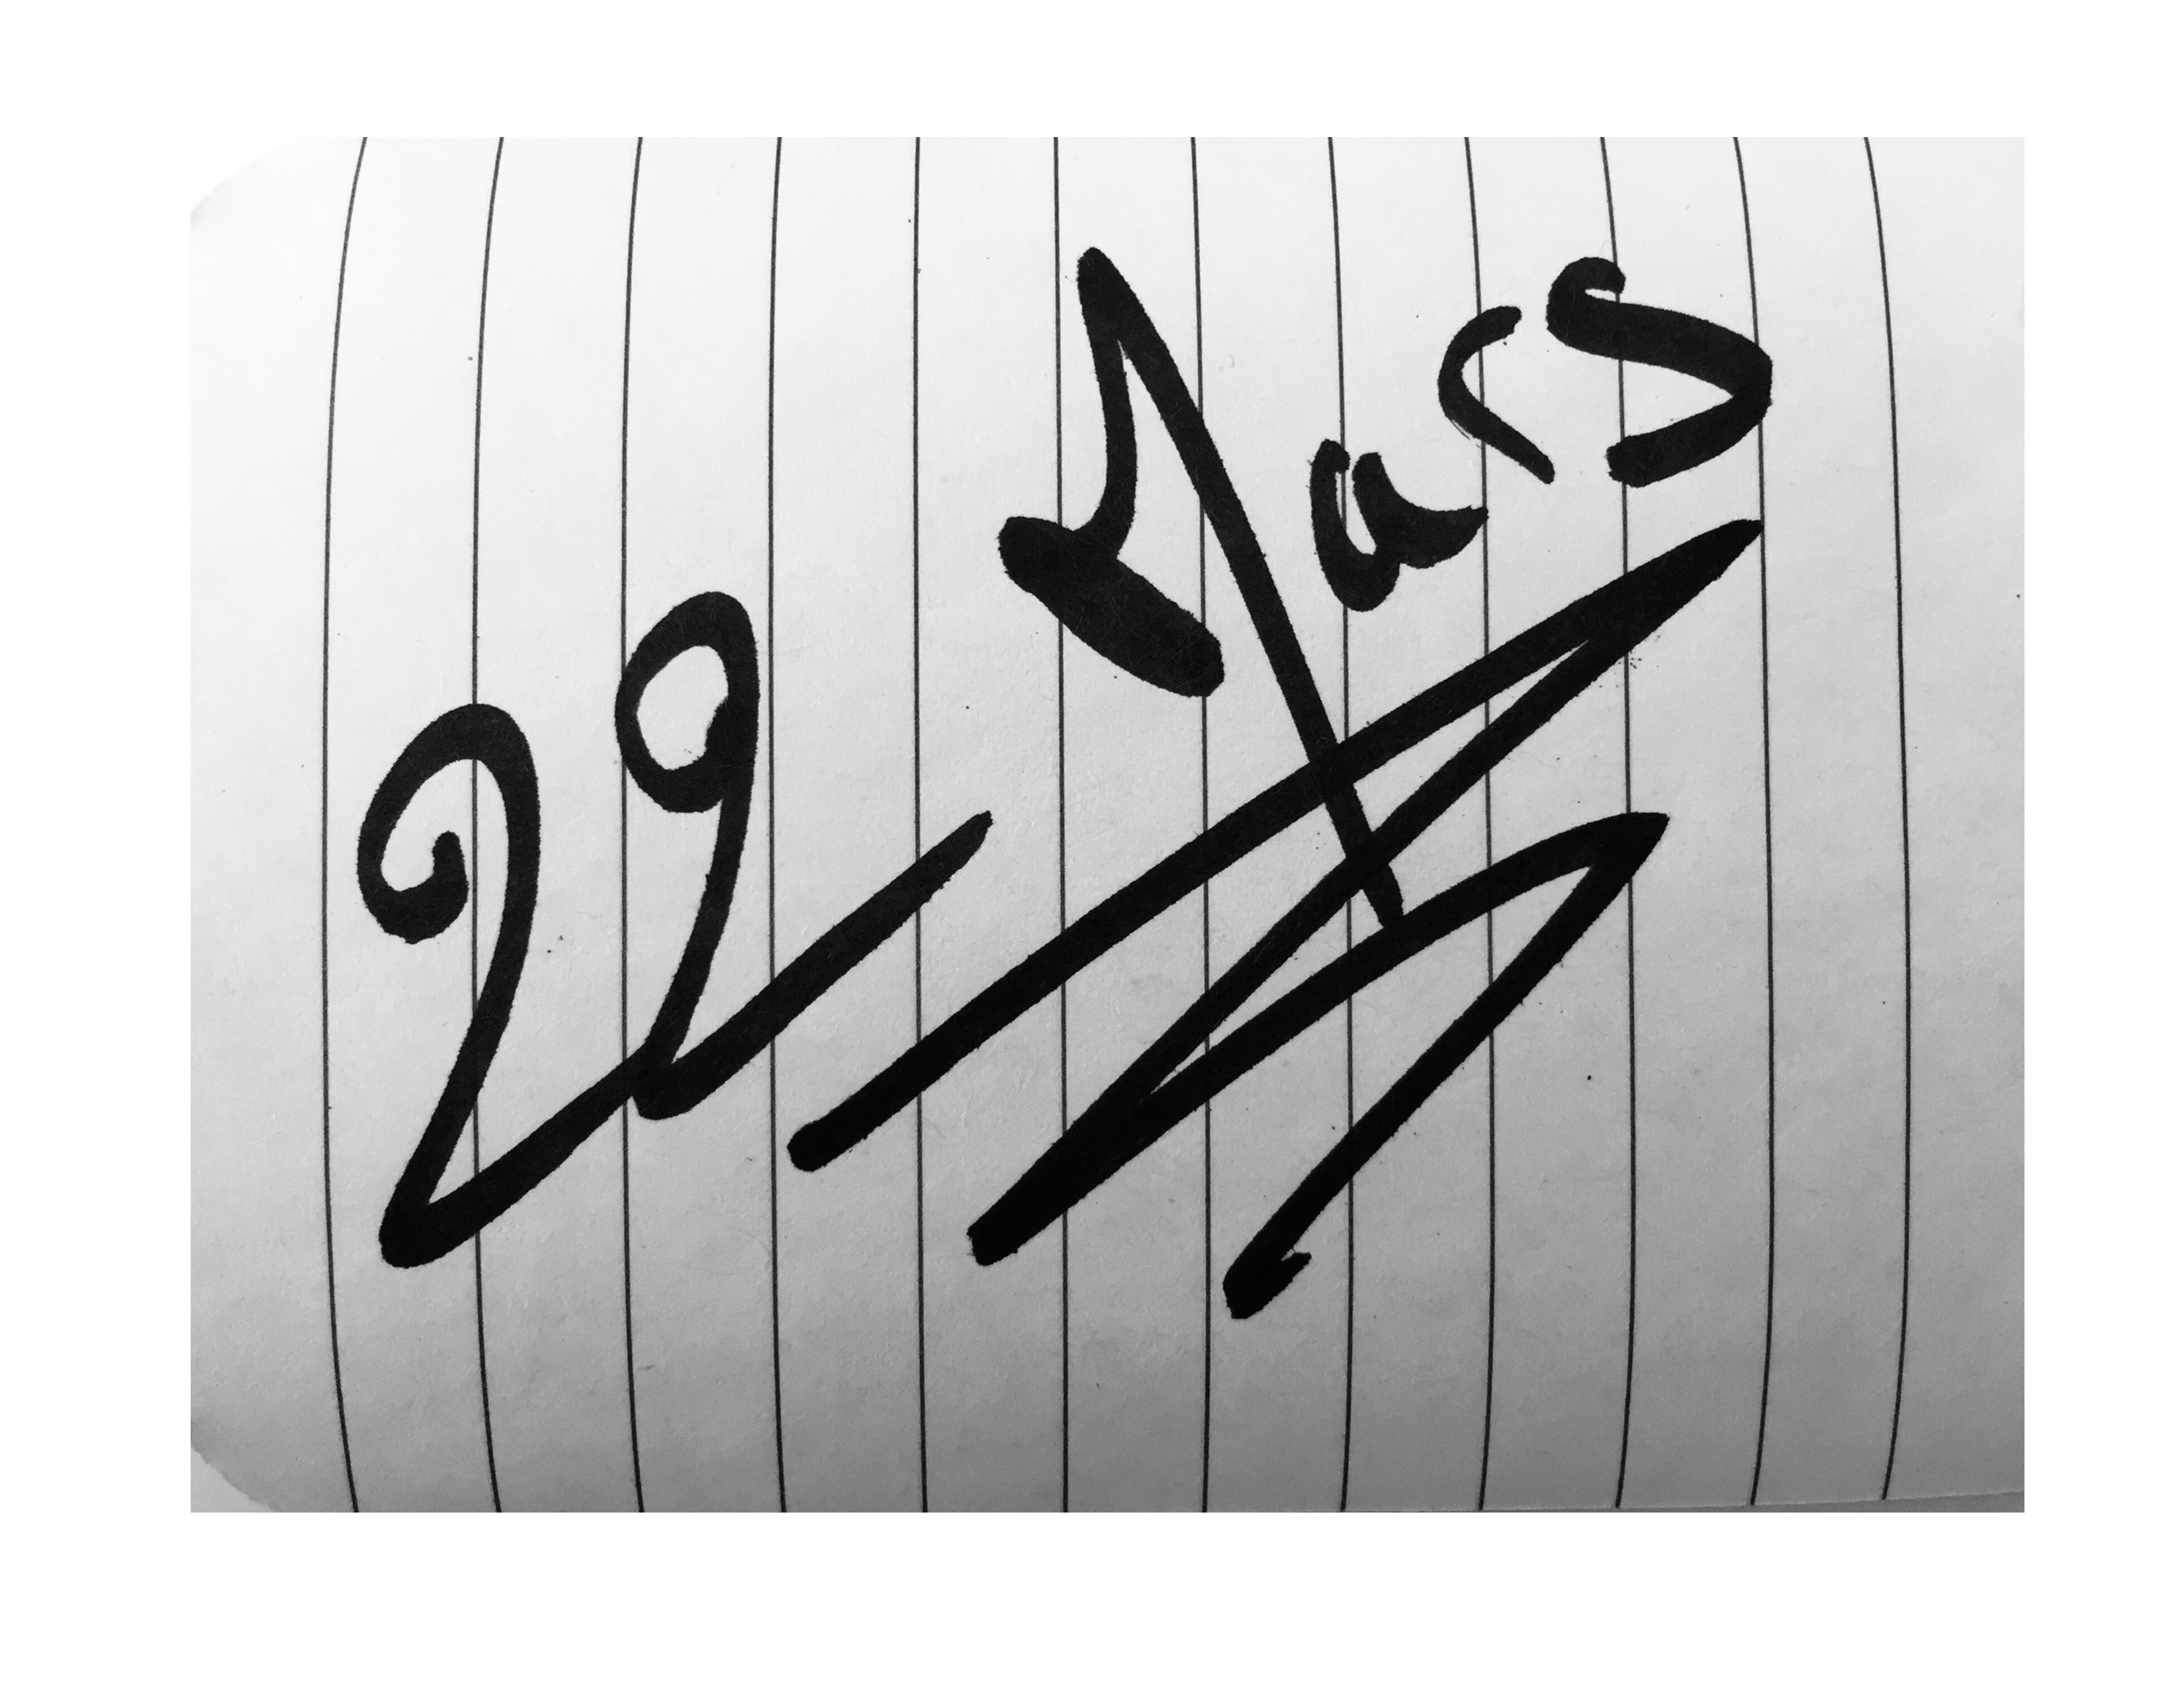 22 Mars